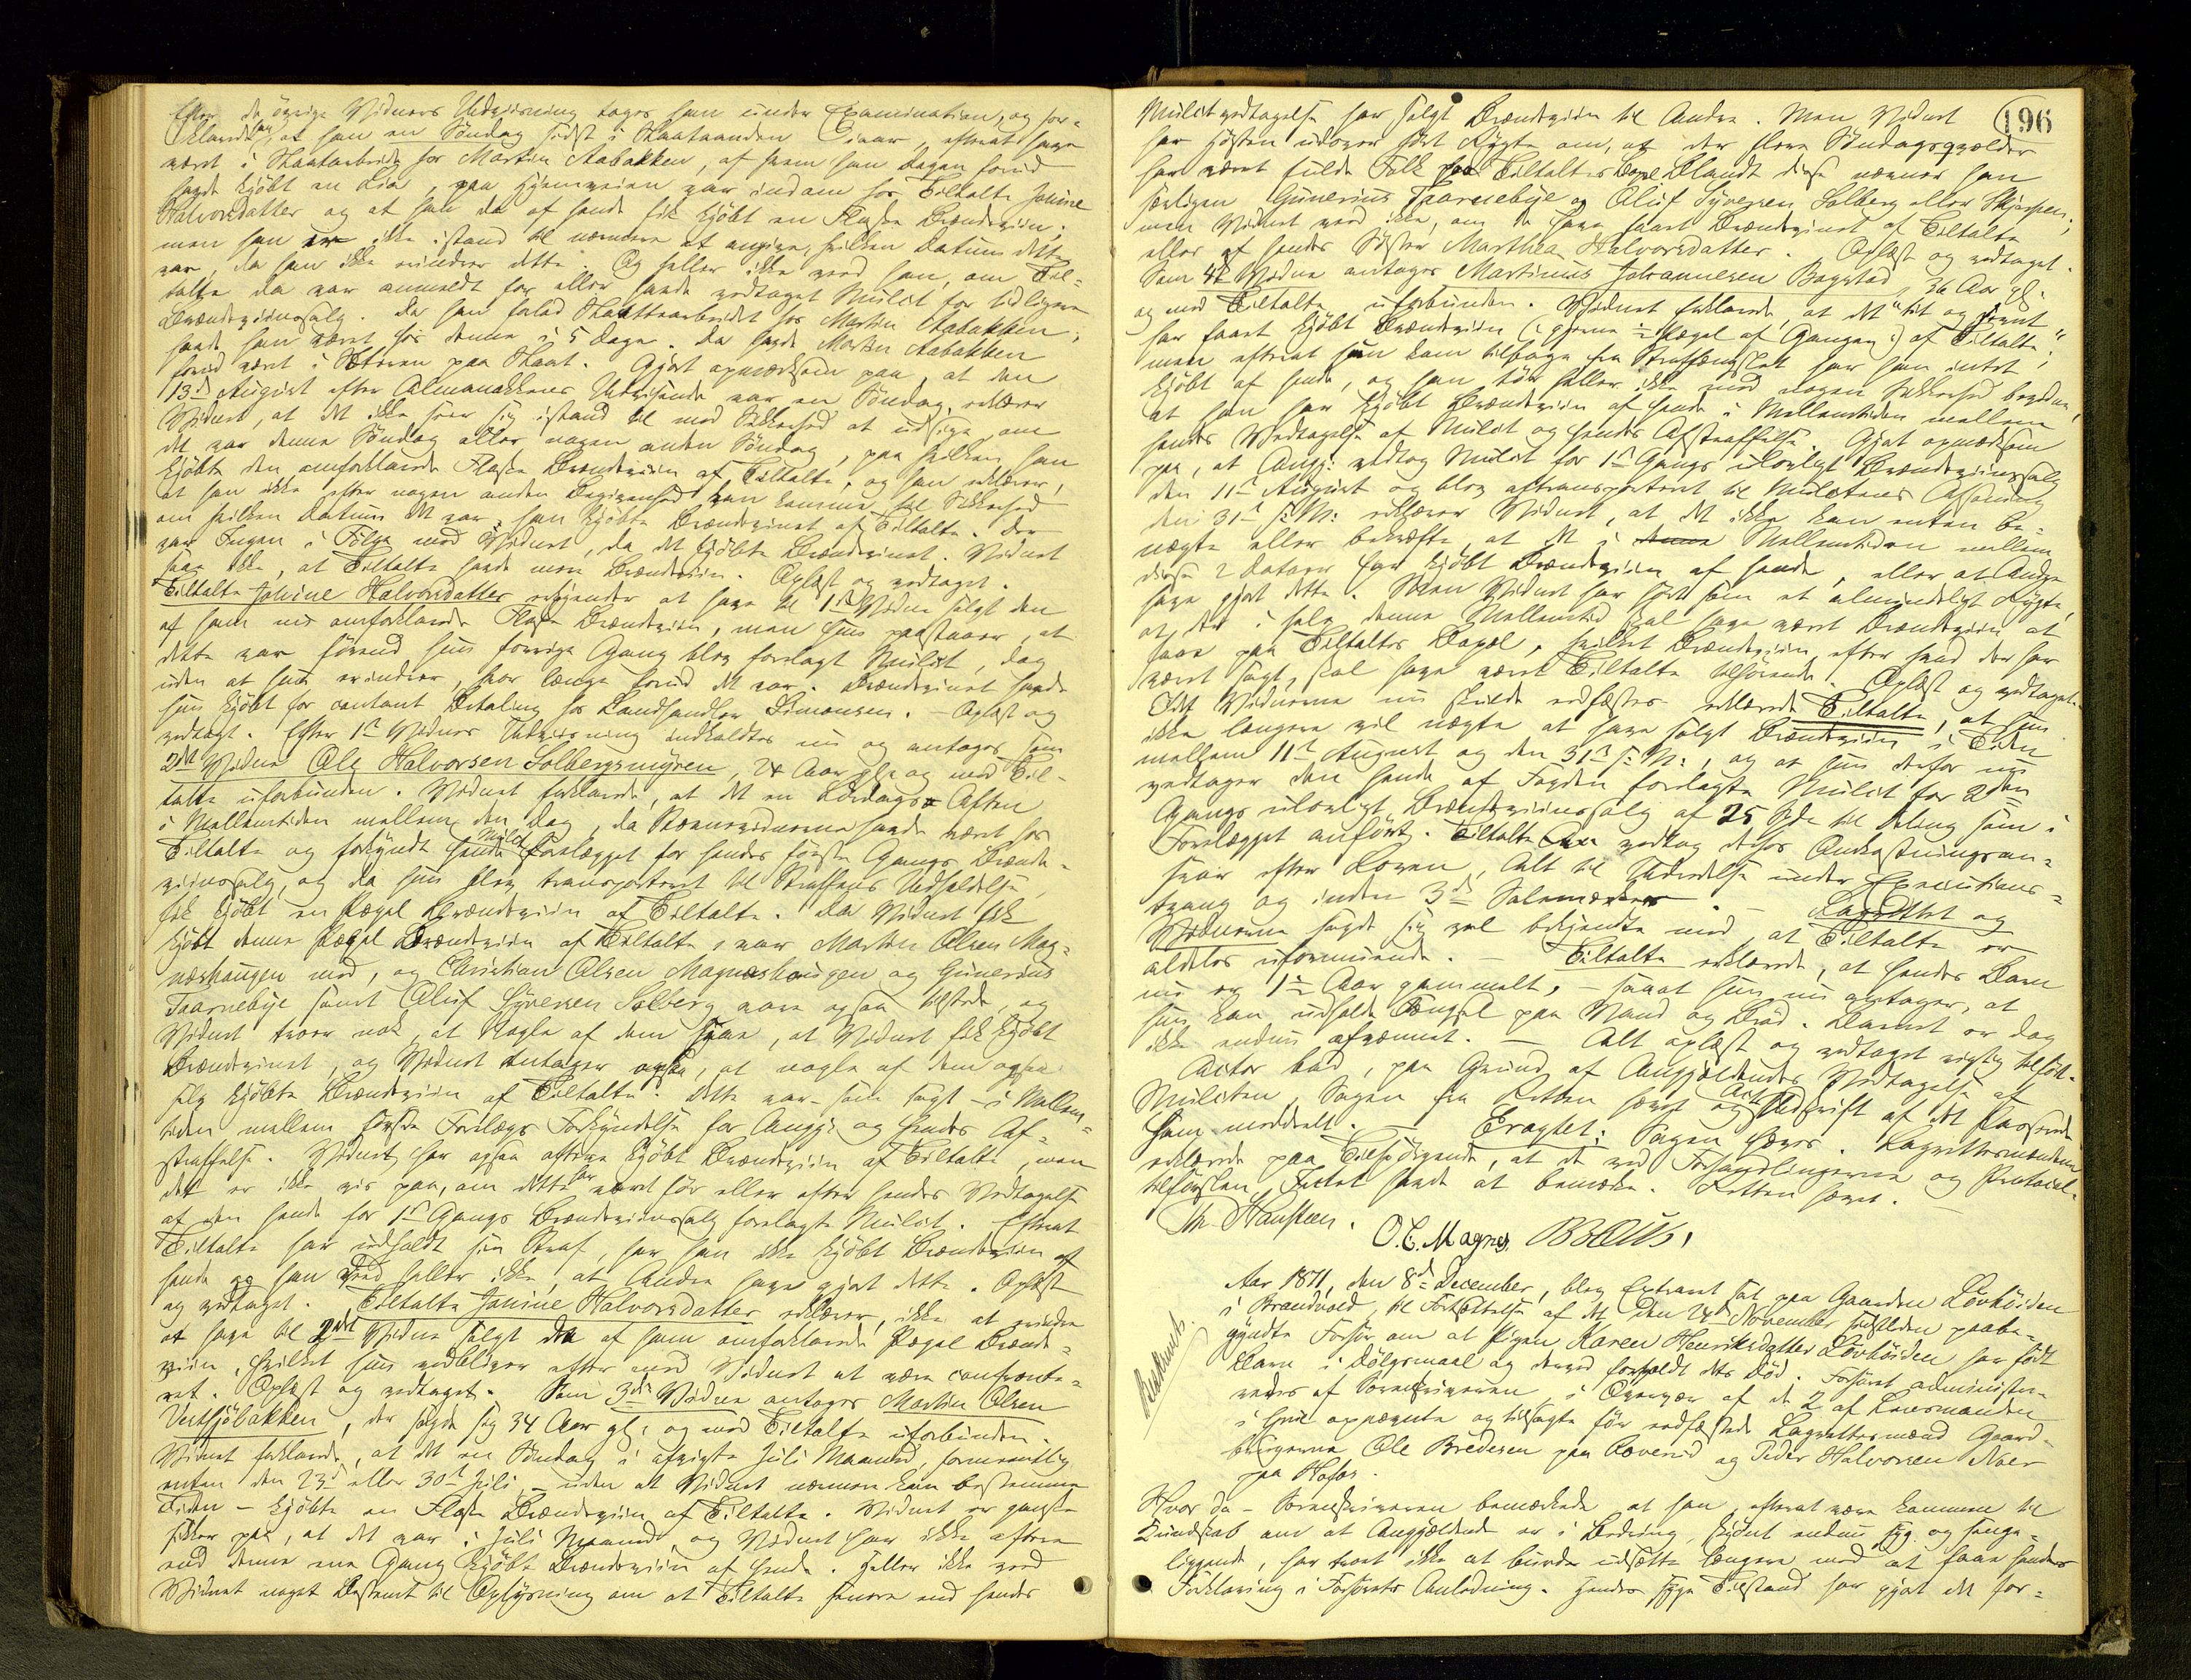 Efter de øvrige Vidners Udviisning toges han under Examination, og for-
klarede han, at han en Søndag sidst i Slaataanden iaar, efterat have
været i Slaatarbeide hos Martin Aabakken, af hvem han Dagen forud
havde kjøbt en Lia, paa Hjemveien var indom hos Tiltalte Janine
Halvorsdatter og at han da af hende fik kjøbt en Flaske Brændeviin;
men han er ikke istand til nærmere at angive, hvilken Datum dette
var, da han ikke erindrer dette. Og heller ikke veed han, om Til-
talte da var anmeldt for eller havde vedtaget Mulct for tidligere
Brændeviinssalg. Da han forlod Slaatterarbeidet hos Martin Aabakken,
havde han været hos denne i 5 Dage. Da havde Martin Aabakken
forud været i Sæteren paa Slaat. Gjort opmærksom paa, at den
13de August efter Almanakkens Udvisende var en Søndag, erklærer
Vidnet, at det ikke seer sig istand til med Sikkerhed at udsige, om
det var denne Søndag eller nogen anden Søndag, paa hvilken han
kjøbte den omforklarede Flaske Brændeviin af Tiltalte, og han erklærer,
at han ikke efter nogen anden Begivenhed kan komme til Sikkerhed
om hvilken Datum det var, han kjøbte Brændevinet af Tiltalte. Der
var Ingen i Følge med Vidnet, da det kjøbte Brændevinet. Vidnet
saa ikke, at Tiltalte havde mere Brændeviin. Oplæst og vedtaget.
Tiltalte Janine Halvorsdatter erkjender at have til 1ste Vidne solgt den
af ham nu omforklarede Flaske Brændeviin, men hun paastaaer, at
dette var førend hun forrige Gang blev forelagt Mulct, dog
uden at hun erindrer, hvor længe forud det var. Brændevinet havde
hun kjøbt for contant Betaling hos Landhandler Simonsen. - Oplæst og
vedtaget. Efter 1ste Vidnes Udviisning indkaldtes nu og antoges som
2det Vidne Ole Halvorsen Solbergsmyren, 24 Aar gl. og med Til-
talte uforbunden. Vidnet forklarede, at det en Lørdags Aften
i Mellemtiden mellem den Dag, da Stævnevidnerne havde været hos
Tiltalte og forkyndt hende Mulct Forelægget for hendes første Gangs Brænde-
viinssalg, og da hun blev transporteret til Straffens Udholdelse,
fik kjøbt en Pægel Brændeviin af Tiltalte. Da Vidnet fik
kjøbt denne Pægel Brændeviin af Tiltalte, var Martin Olsen Mag-
næshaugen med, og Christian Olsen Magnæshaugen og Gunerius
Taarnebye samt Oluf Syversen Solberg vare ogsaa tilstede, og
Vidnet troer nok, at Nogle af dem saae, at Vidnet fik kjøbt
Brændevinet, og Vidnet antager ogsaa, at nogle af dem ogsaa
selv kjøbte Brændeviin af Tiltalte. Dette var - som sagt - i Mellem-
tiden mellem første Forelægs Forkyndelse for Angjældende og hendes Af-
straffelse. Vidnet har ogsaa oftere kjøbt Brændeviin af Tiltalte, men
det er ikke vis paa, om dette har været før eller efter hendes Vedtagelse
af den hende for 1ste Gangs Brændeviinssalg forelagte Mulct. Efterat
Tiltalte har udholdt sin Straf, har han ikke kjøbt Brændeviin af
hende og han veed heller ikke, at Andre have gjort dette. Oplæst
og vedtaget. Tiltalte Janine Halvorsdatter erklærer, ikke at erindre
at have til 2det Vidne solgt den af ham omforklarede Pægel Brænde-
viin, hvilket hun vedbliver efter med Vidnet at være confronte-
ret. Oplæst og vedtaget. Som 3die Vidne antoges Martin Olsen
Vestsjøbakken, der sagde sig 34 Aar gl. og med Tiltalte uforbunden.
Vidnet forklarede, at det en Søndag i afvigte Juli Maaned, formentlig
enten den 23de eller 30te Juli, - uden at Vidnet nærmere kan bestemme
Tiden - kjøbte en Flaske Brændeviin af Tiltalte. Vidnet er ganske
sikker paa, at det var i Juli Maaned, og Vidnet har ikke oftere
end denne ene Gang kjøbt Brændeviin af hende. Heller ikke veed
Vidnet noget Bestemt til Oplysning om at Tiltalte senere end hendes
196
Mulctvedtagelse har solgt Brændeviin til Andre. Men Vidnet
har Høsten udover hørt Rygte om, at der flere Søndagsqvælder
har været fulde Folk paa Tiltaltes Bopæl. Blandt disse nævner han
særligen Gunerius Taarnebye og Oluf Syversen Solberg eller Skjæshen;
men Vidnet veed ikke, om de have faaet Brændevinet af Tiltalte
eller af hendes Søster Marthea Halvorsdatter. Oplæst og vedtaget.
Som 4de Vidne antoges Martinus Johannesen Bogstad, 36 Aar gl.
og med Tiltalte uforbunden. Vidnet forklarede, at det "tit og jevnt"
har faaet kjøbt Brændeviin (: gjerne ½ Pægel af Gangen :) af Tiltalte,
men efterat hun kom tilbage fra Straffængslet har han intet
kjøbt af hende, og han tør heller ikke med nogen Sikkerhed benægte,
at han har kjøbt Brændeviin af hende i Mellemtiden mellem
hendes Vedtagelse af Mulct og hendes Afstraffelse. Gjort opmærksom
paa, at Angj: vedtog Mulct for 1ste Gangs ulovligt Brændeviinssalg
den 11te August og blev aftransporteret til Mulctens Afsoning
den 31te s: M: erklærer Vidnet, at det ikke kan enten be-
nægte eller bekræfte, at det i denne Mellemtiden mellem
disse 2 Datoer har kjøbt Brændeviin af hende, eller at Andre
have gjort dette. Men Vidnet har hørt som et almindeligt Rygte,
at der i selve denne Mellemtid skal have været Brændeviin at
faae paa Tiltaltes Bopæl, hvilket Brændeviin efter hvad der har
været sagt, skal have været Tiltalte tilhørende. Oplæst og vedtaget.
Idet Vidnerne nu skulde edfæstes erklærede Tiltalte, at hun
ikke længere vil nægte at have solgt Brændeviin i Tiden
mellem 11te August og den 31te s: M:, og at hun derfor nu
vedtager den hende af Fogden forelagte Mulct for 2den
Gangs ulovligt Brændeviinssalg af 25 Spd. til Deling som i
Forelægget anført. Tiltalte vedtog derhos Omkostningsan-
svar efter Loven, Alt til Udredelse under Executions-
tvang og inden 3de Solemærker. - Lagrettet og
Vidnerne sagde sig vel bekjendte med, at Tiltalte er
aldeles uformuende. - Tiltalte erklærede, at hendes Barn
nu er 1½ Aar gammelt, - saaat hun nu antager, at
hun kan udholde Fængsel paa Vand og Brød. Barnet er dog
ikke endnu afvænnet. - Alt oplæst og vedtaget rigtig tilført.
Actor bad, paa Grund af Angjældendes Vedtagelse af
Mulcten, Sagen fra Retten hævet og Act Udskrift af det Passerede
ham meddeelt. - Eragtet: Sagen hæves. Lagrettesmændene
erklærede paa Tilspørgende, at de ved Forhandlingerne og Protocol-
tilførslen Intet havde at bemærke. Retten hævet. -
Th. Hansteen. O. C. Magnes.
Aar 1871, den 8de December, blev Extraret sat paa Gaarden Løvhøiden
i Brandvold, til Fortsættelse af det den 24de November sidstleden paabe-
gyndte Forhør om at Pigen Karen Henriksdatter Løvhøiden har født
Barn i Dølgsmaal og derved forvoldt dets Død. Forhøret administre-
redes af Sorenskriveren, i Overvær af de 2 af Lensmanden
i Grue opnævnte og tilsagte før edfæstede Lagrettesmænd Gaard-
brugerne Ole Bredesen paa Ræverud og Peder Halvorsen Noer
paa Hofos.
Hvor da - Sorenskriveren bemærkede, at han, efterat være kommen til
Kundskab om at Angjældende er i Bedring, skjønt endnu syg og senge-
liggende, har troet ikke at burde udsætte længere med at faae hendes
Forklaring i Forhørets Anledning. Hendes syge Tilstand har gjort det for-